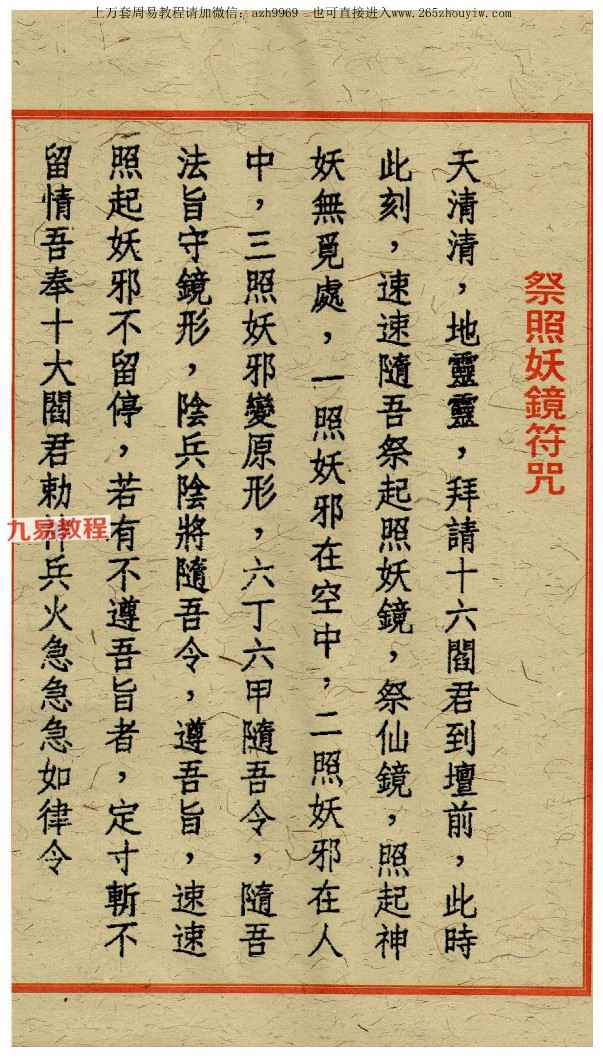 上万套周易教程请加微信：azh9969 也可直接进入www.265zhouyiw.com
祭照妖鏡符咒
天清清，地靈靈，拜請十六閻君到壇前，此時
此刻，速速隨吾祭起照妖鏡，祭仙鏡，照起神
妖無覓處，一照妖邪在空中，二照妖邪在人
中，三照妖邪變原形，六丁六甲隨吾令，隨吾
法旨守鏡形，陰兵陰將隨吾令，遵吾旨，速速
照起妖邪不留停，若有不遵吾旨者，定寸斬不
留情吾奉十大閻君勅神兵火急急急如律令
九易教程